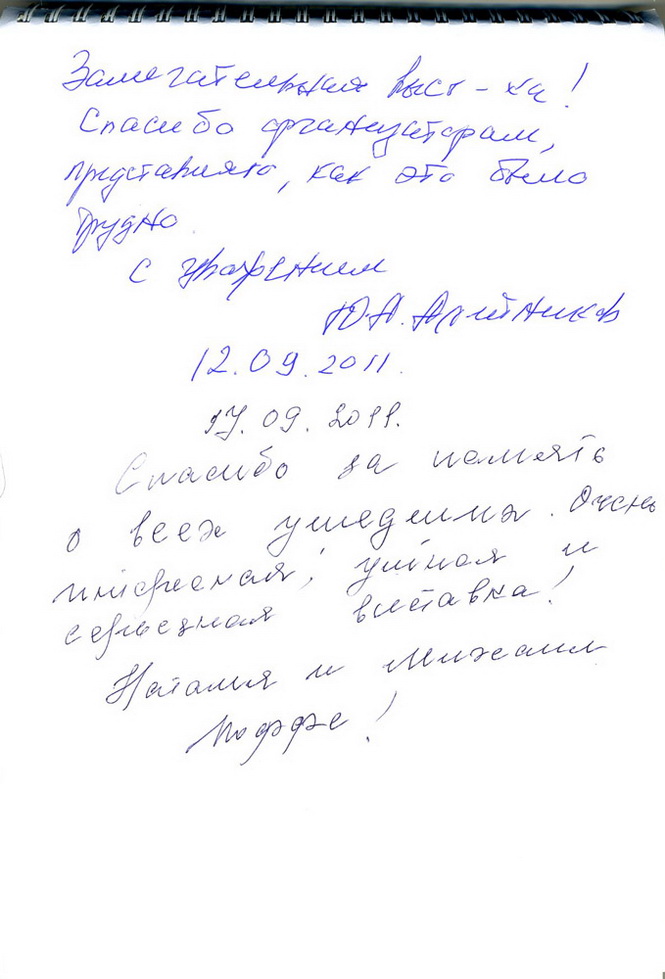 Замечательная выст-ка!
Спасибо организаторам,
представляю, как это было
трудно.
С уважением
Ю.А.
12.09.2011.
17.09.2011.
Спасибо за память
о всех ушедших. Очень
интересная, умная и
серьезная выставка!
Наталия и Михаил
Иоффе!